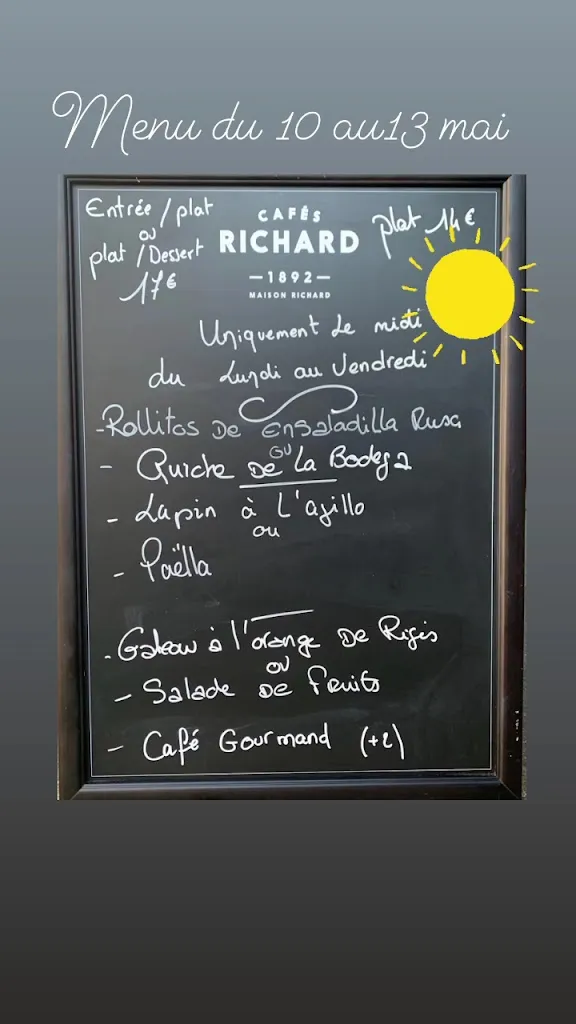 Menu du 10 au 13 mai
Entrée / plat
ou
plat / Dessert
17€
CAFÉS
RICHARD
1892
MAISON RICHARD
plat 14€
Uniquement Le midi
du Lundi au Vendredi
- Rollitos De Ensaladilla Rusa
ou
- Quiche De La Bodega
- Lapin à L'ajillo
ou
- Paëlla
- Gateau à l'orange De Régis
ou
- Salade De Fruits
- Café Gourmand (+2)